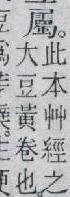 屬。
此本艸經之
大豆黃卷也。